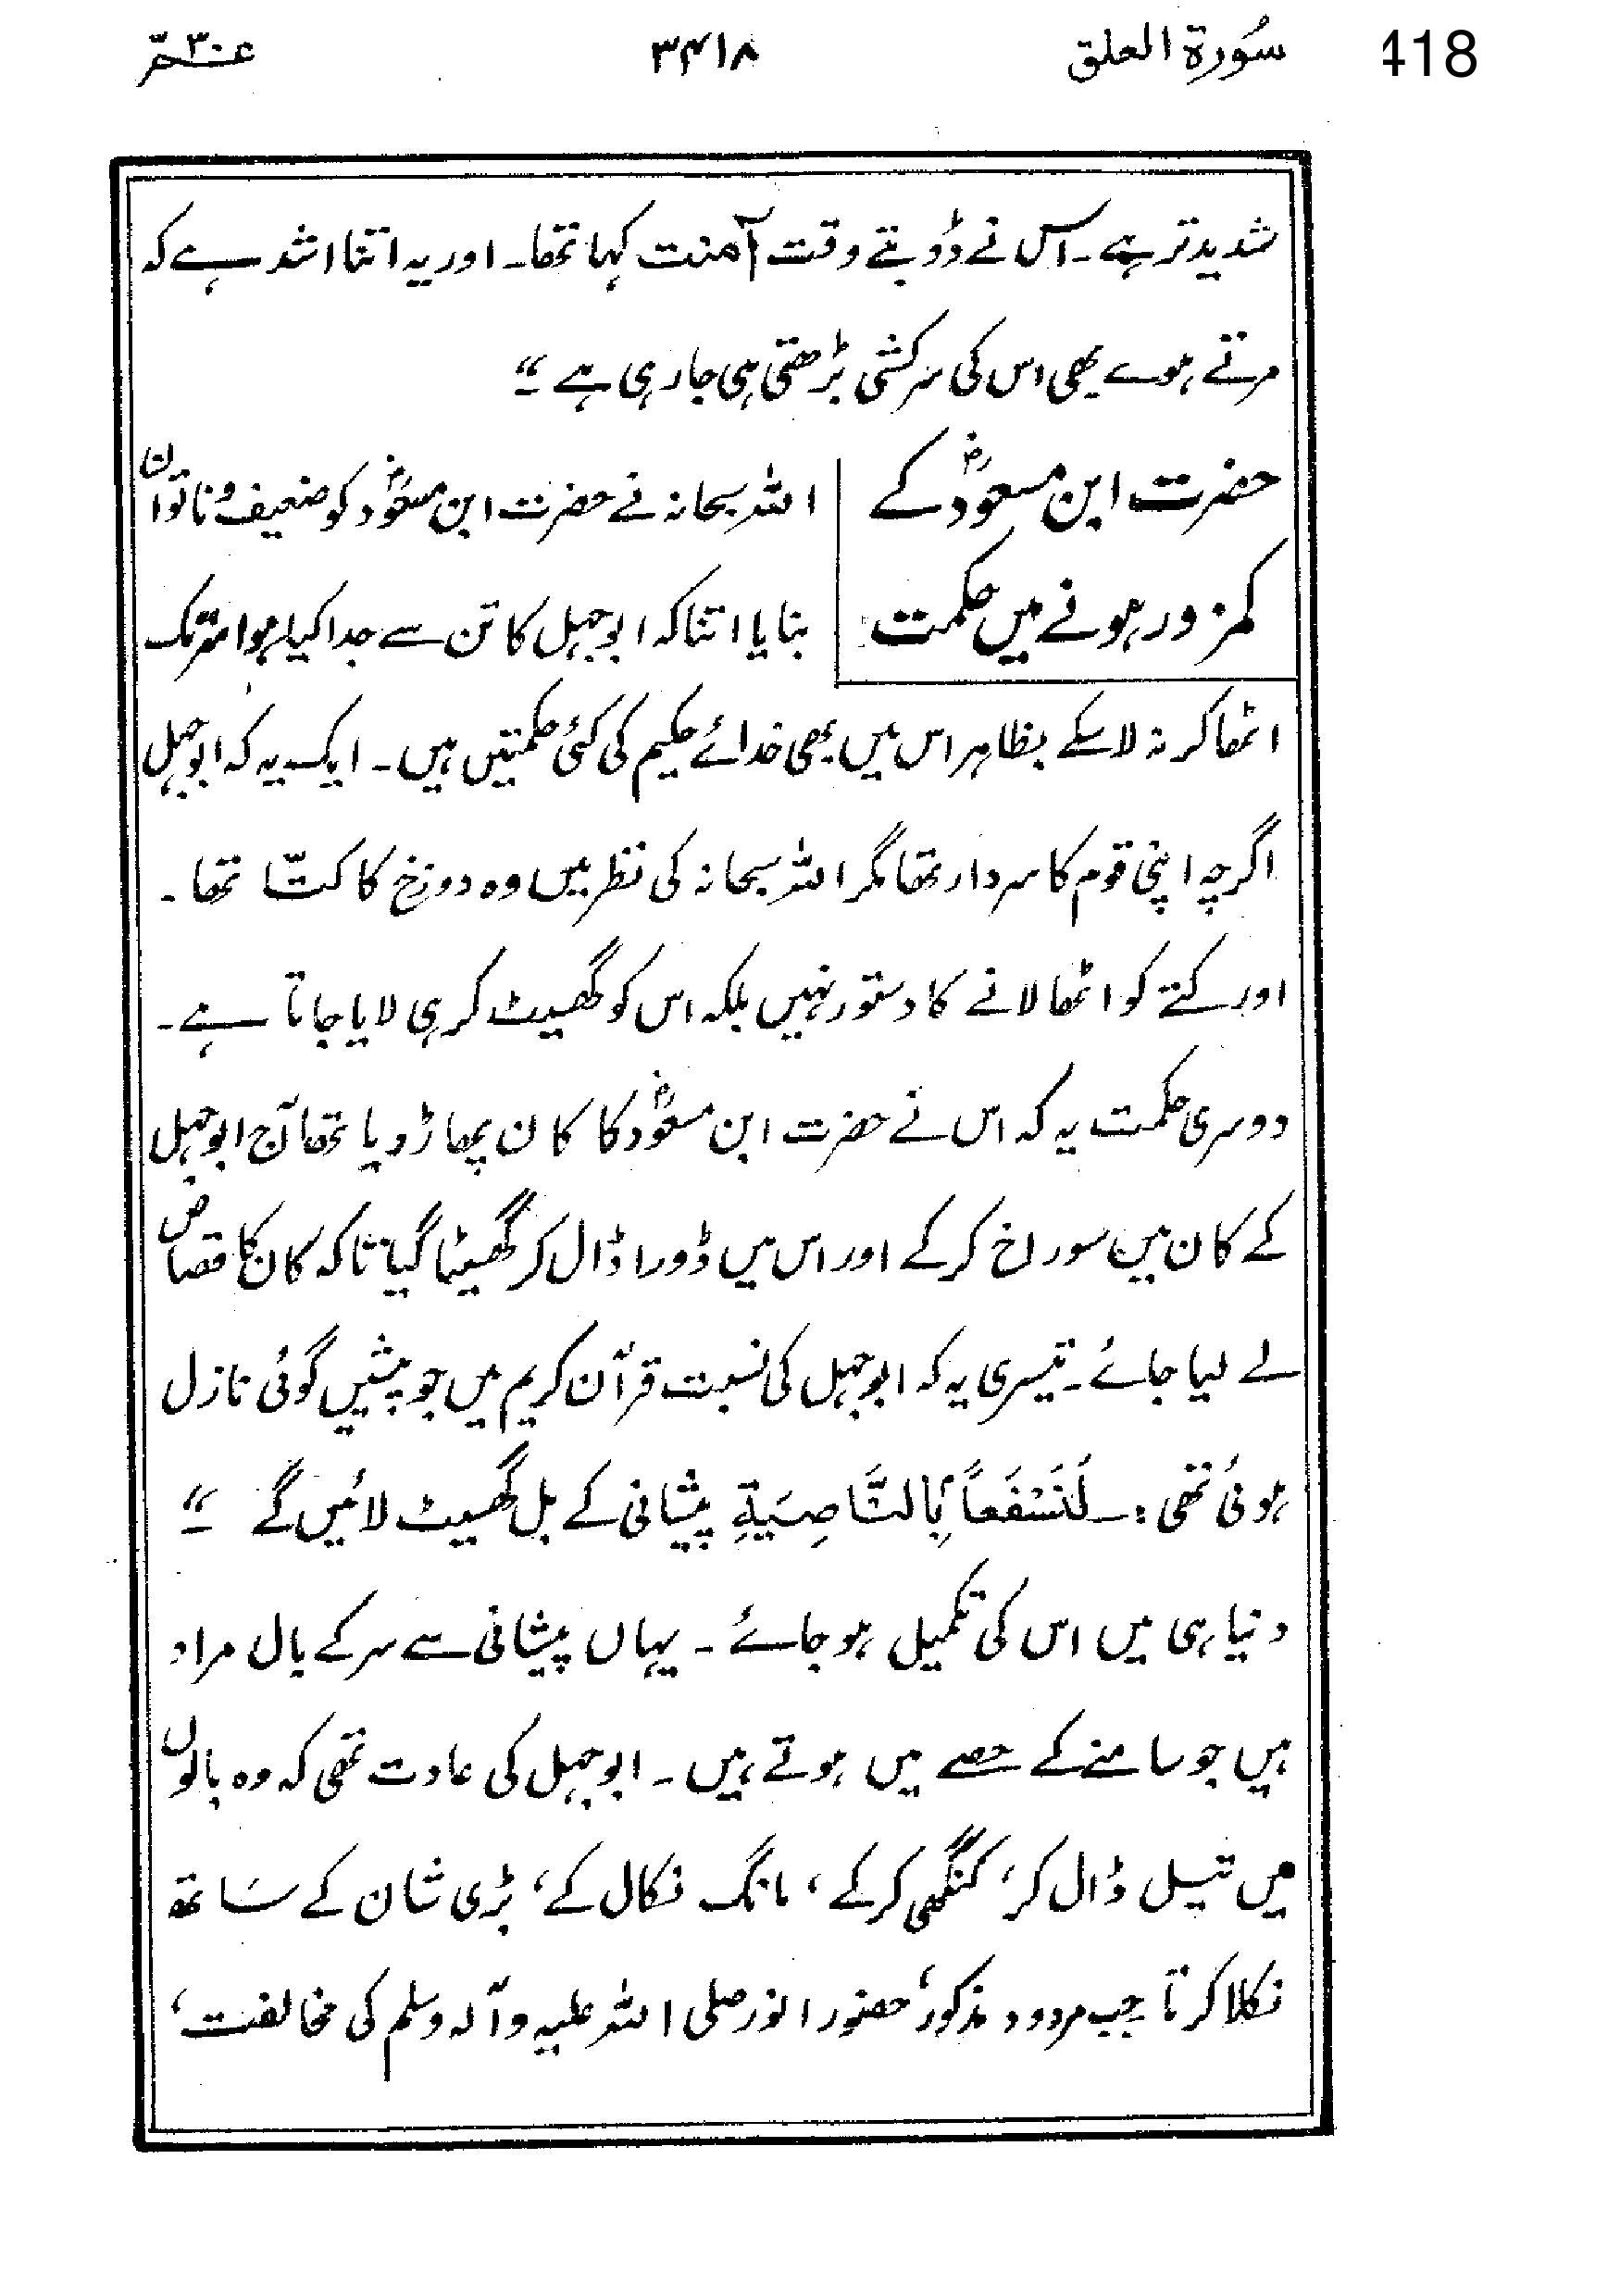 418
سُورة العلق
۳۴۱۸
عـ۳۰ـمّ
شدید تر ہے۔ اس نے ڈوبتے وقت آمنت کہا تھا۔ اور یہ اتنا اشد ہے کہ
مرتے ہوے بھی اس کی سرکشی بڑھتی ہی جا رہی ہے "
حضرت ابن مسعودؓ کے
کمزور ہونے میں حکمت
اللہ سبحانہ نے حضرت ابن مسعودؓ کو ضعیف و ناتواں
بنایا اتنا کہ ابوجہل کا تن سے جدا کیا ہوا سر تک
اٹھا کر نہ لا سکے بظاہر اس میں بھی خدائے حکیم کی کئی حکمتیں ہیں۔ ایک یہ کہ ابوجہل
اگرچہ اپنی قوم کا سردار تھا مگر اللہ سبحانہ کی نظر میں وہ دوزخ کا کتّا تھا۔
اور کتے کو اٹھا لانے کا دستور نہیں بلکہ اس کو گھسیٹ کر ہی لایا جاتا ہے۔
دوسری حکمت یہ کہ اس نے حضرت ابن مسعودؓ کا کان پھاڑ دیا تھا آج ابوجہل
کے کان میں سوراخ کر کے اور اس میں ڈورا ڈال کر گھسیٹا گیا تاکہ کان کا قصاص
لے لیا جائے۔ تیسری یہ کہ ابوجہل کی نسبت قرآن کریم میں جو پیشیں گوئی نازل
ہوئی تھی :۔ لَنَسْفَعاً بِالنَّاصِيَةِ پیشانی کے بل گھسیٹ لائیں گے "
دنیا ہی میں اس کی تکمیل ہو جائے۔ یہاں پیشانی سے سر کے بال مراد
ہیں جو سامنے کے حصے میں ہوتے ہیں۔ ابوجہل کی عادت تھی کہ وہ بالوں
میں تیل ڈال کر، کنگھی کر کے، مانگ نکال کے، بڑی شان کے سَاتھ
نکلا کرتا جب مردود مذکور، حضور انور صلی اللہ علیہ وآلہ وسلم کی مخالفت،